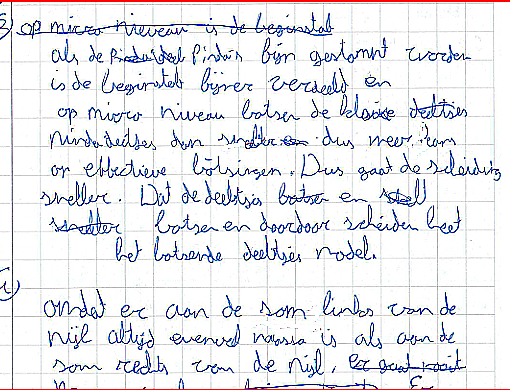 op micro nieveau is de beginstof
als de Pindas fijn gestampt worden
is de beginstof fijner verdeeld en
op micro niveau botsen de deeltjes
pindadeeltjes dan sneller dus meer kans
op effectieve botsingen. Dus gaat de scheiding
sneller. Dat de deeltjes botsen en
sneller botsen en daardoor scheiden heet
het botsende deeltjes model.
omdat er aan de som links van de
pijl altijd evenveel massa is als aan de
som rechts van de pijl. er gaat nooit